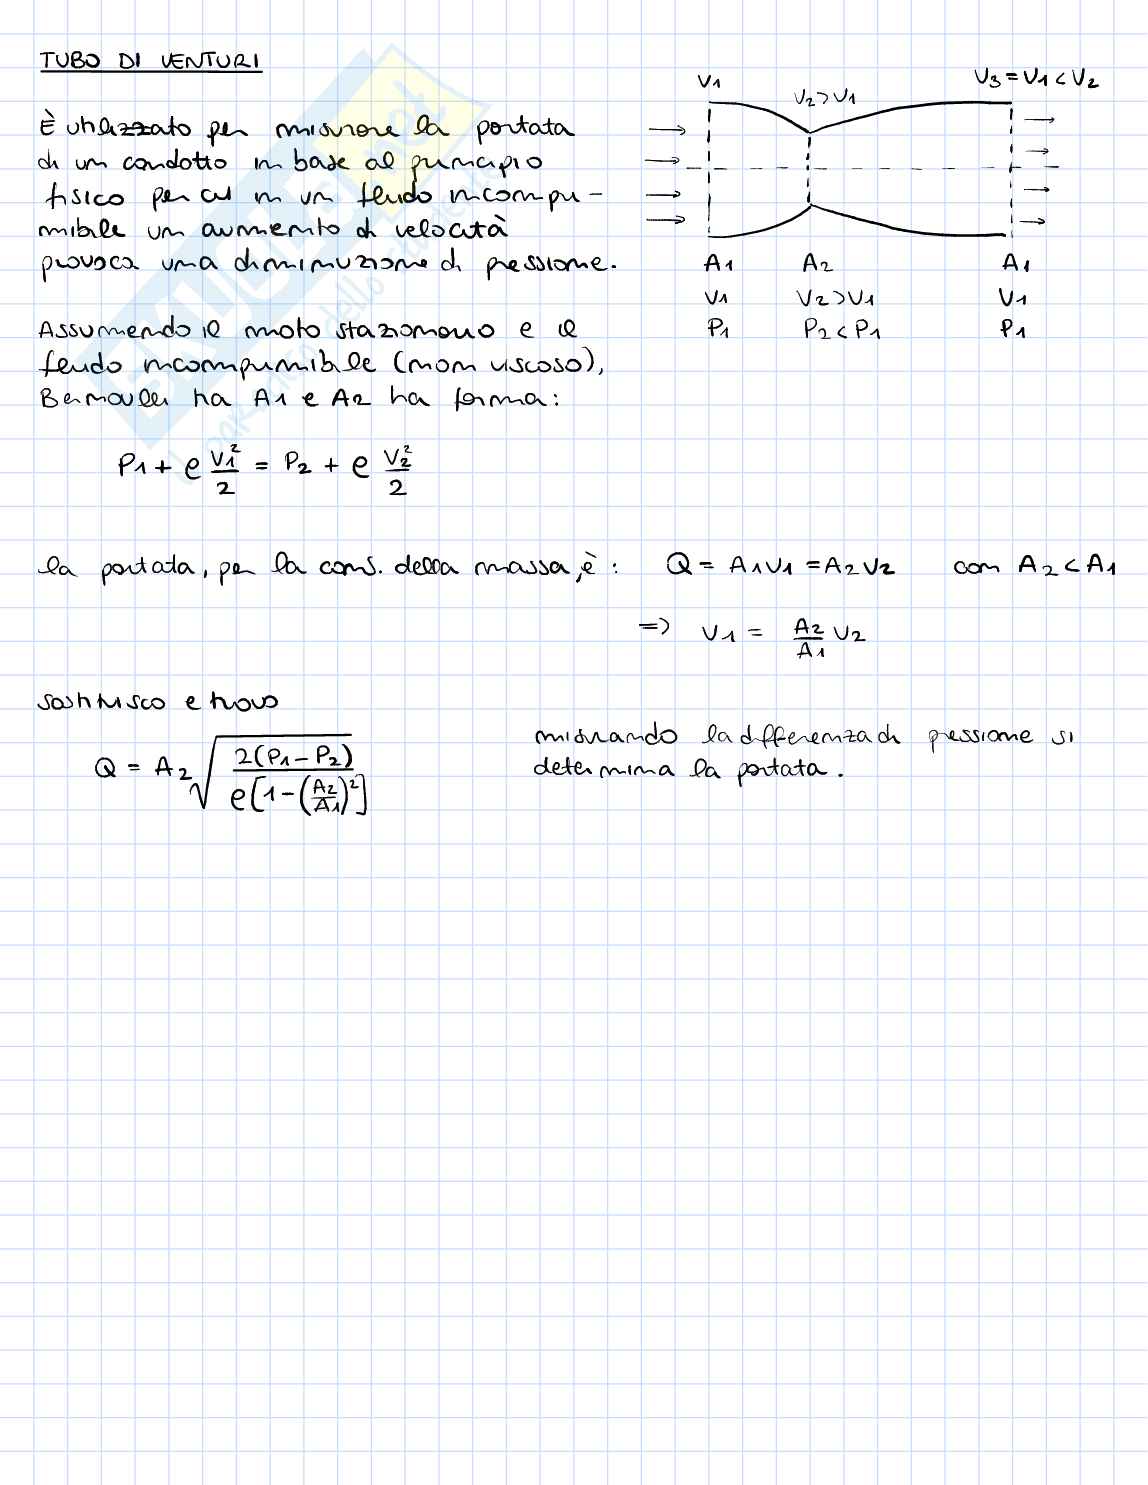 TUBO DI VENTURI
È utilizzato per misurare la portata
di un condotto in base al principio
fisico per cui in un fluido incompri-
mibile un aumento di velocità
provoca una diminuzione di pressione.
V1
V2>V1
V3=V1<V2
A1 A2 A1
V1 V2>V1 V1
P1 P2<P1 P1
Assumendo il moto stazionario e il
fluido incomprimibile (non viscoso),
Bernoulli tra A1 e A2 ha forma:
P1 + ρ V1²/2 = P2 + ρ V2²/2
la portata, per la cons. della massa, è: Q = A1V1 = A2V2 con A2<A1
=> V1 = A2/A1 V2
sostituisco e trovo
Q = A2 √(2(P1-P2)/ρ[1-(A2/A1)²])
misurando la differenza di pressione si
determina la portata.